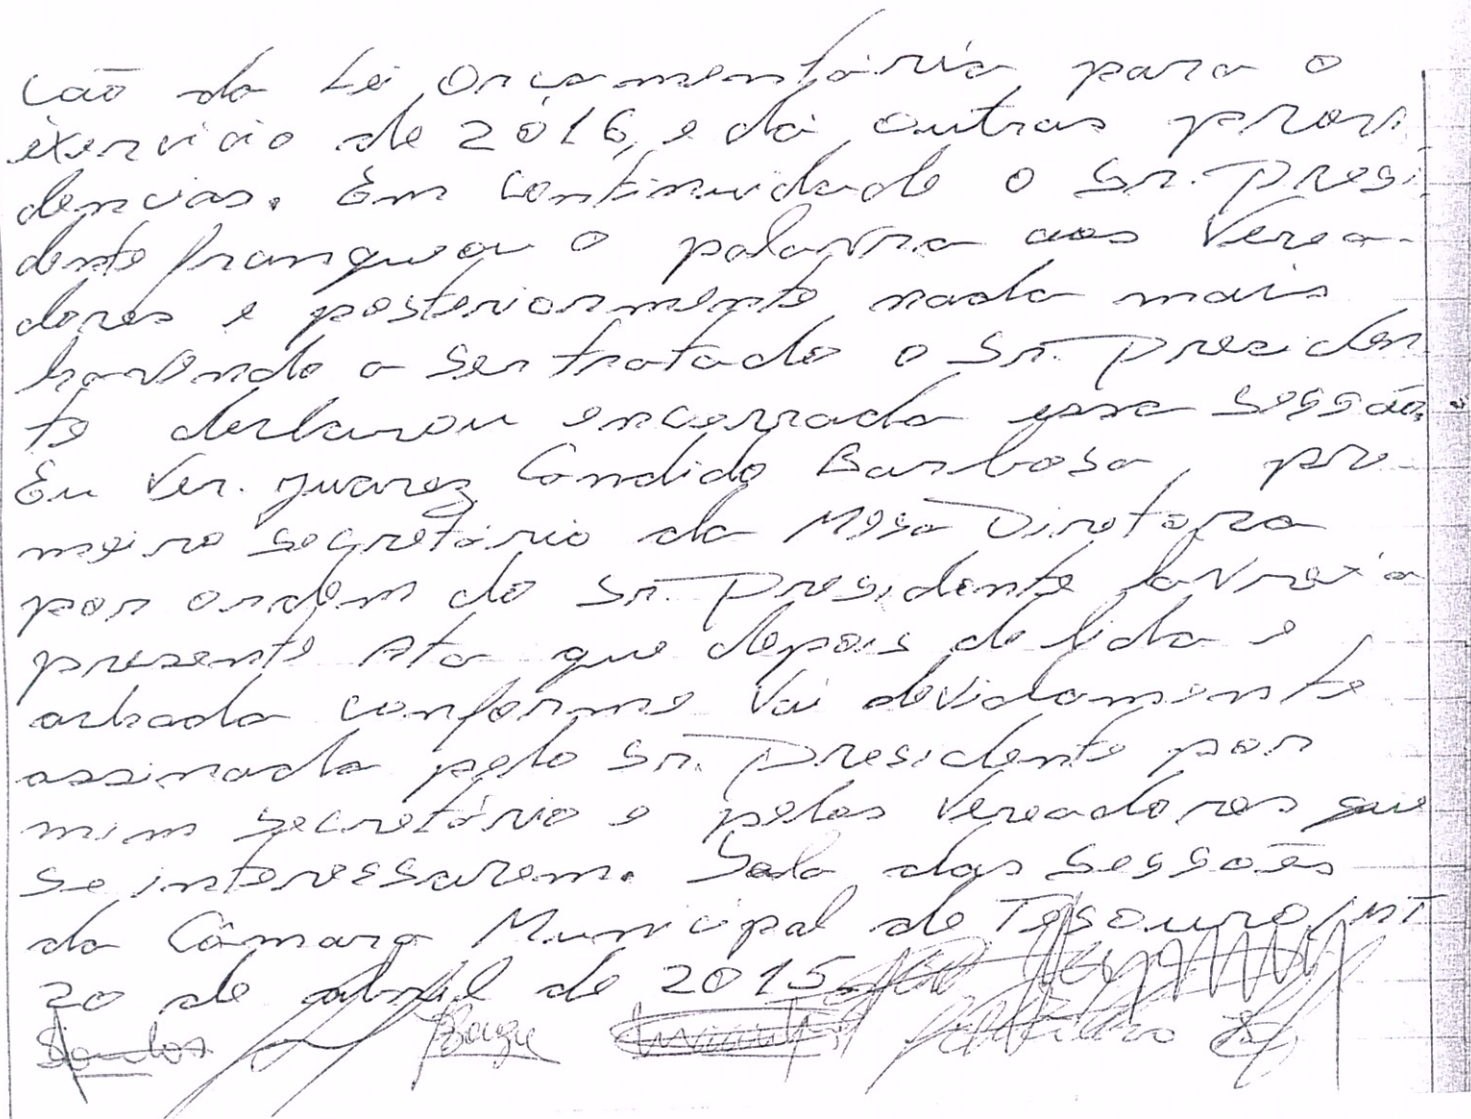 ção da Lei Orçamentária para o
exercicio de 2016, e dá outras provi
dencias. Em continuidade o Sr. Presi
dente franqueou a palavra aos Verea-
dores e posteriormente nada mais
havendo a ser tratado o Sr. Presiden
te declarou encerrada essa Sessão.
Eu Ver. Juarez Candido Barbosa, pri
meiro secretário da Mesa Diretora
por ordem do Sr. Presidente lavrei a
presente Ata que depois de lida e
achada conforme vai devidamente
assinada pelo Sr. Presidente por
mim secretário e pelos Vereadores que
se interessarem. Sala das Sessões
da Câmara Municipal de Tesouro/MT
20 de abril de 2015.
Santos